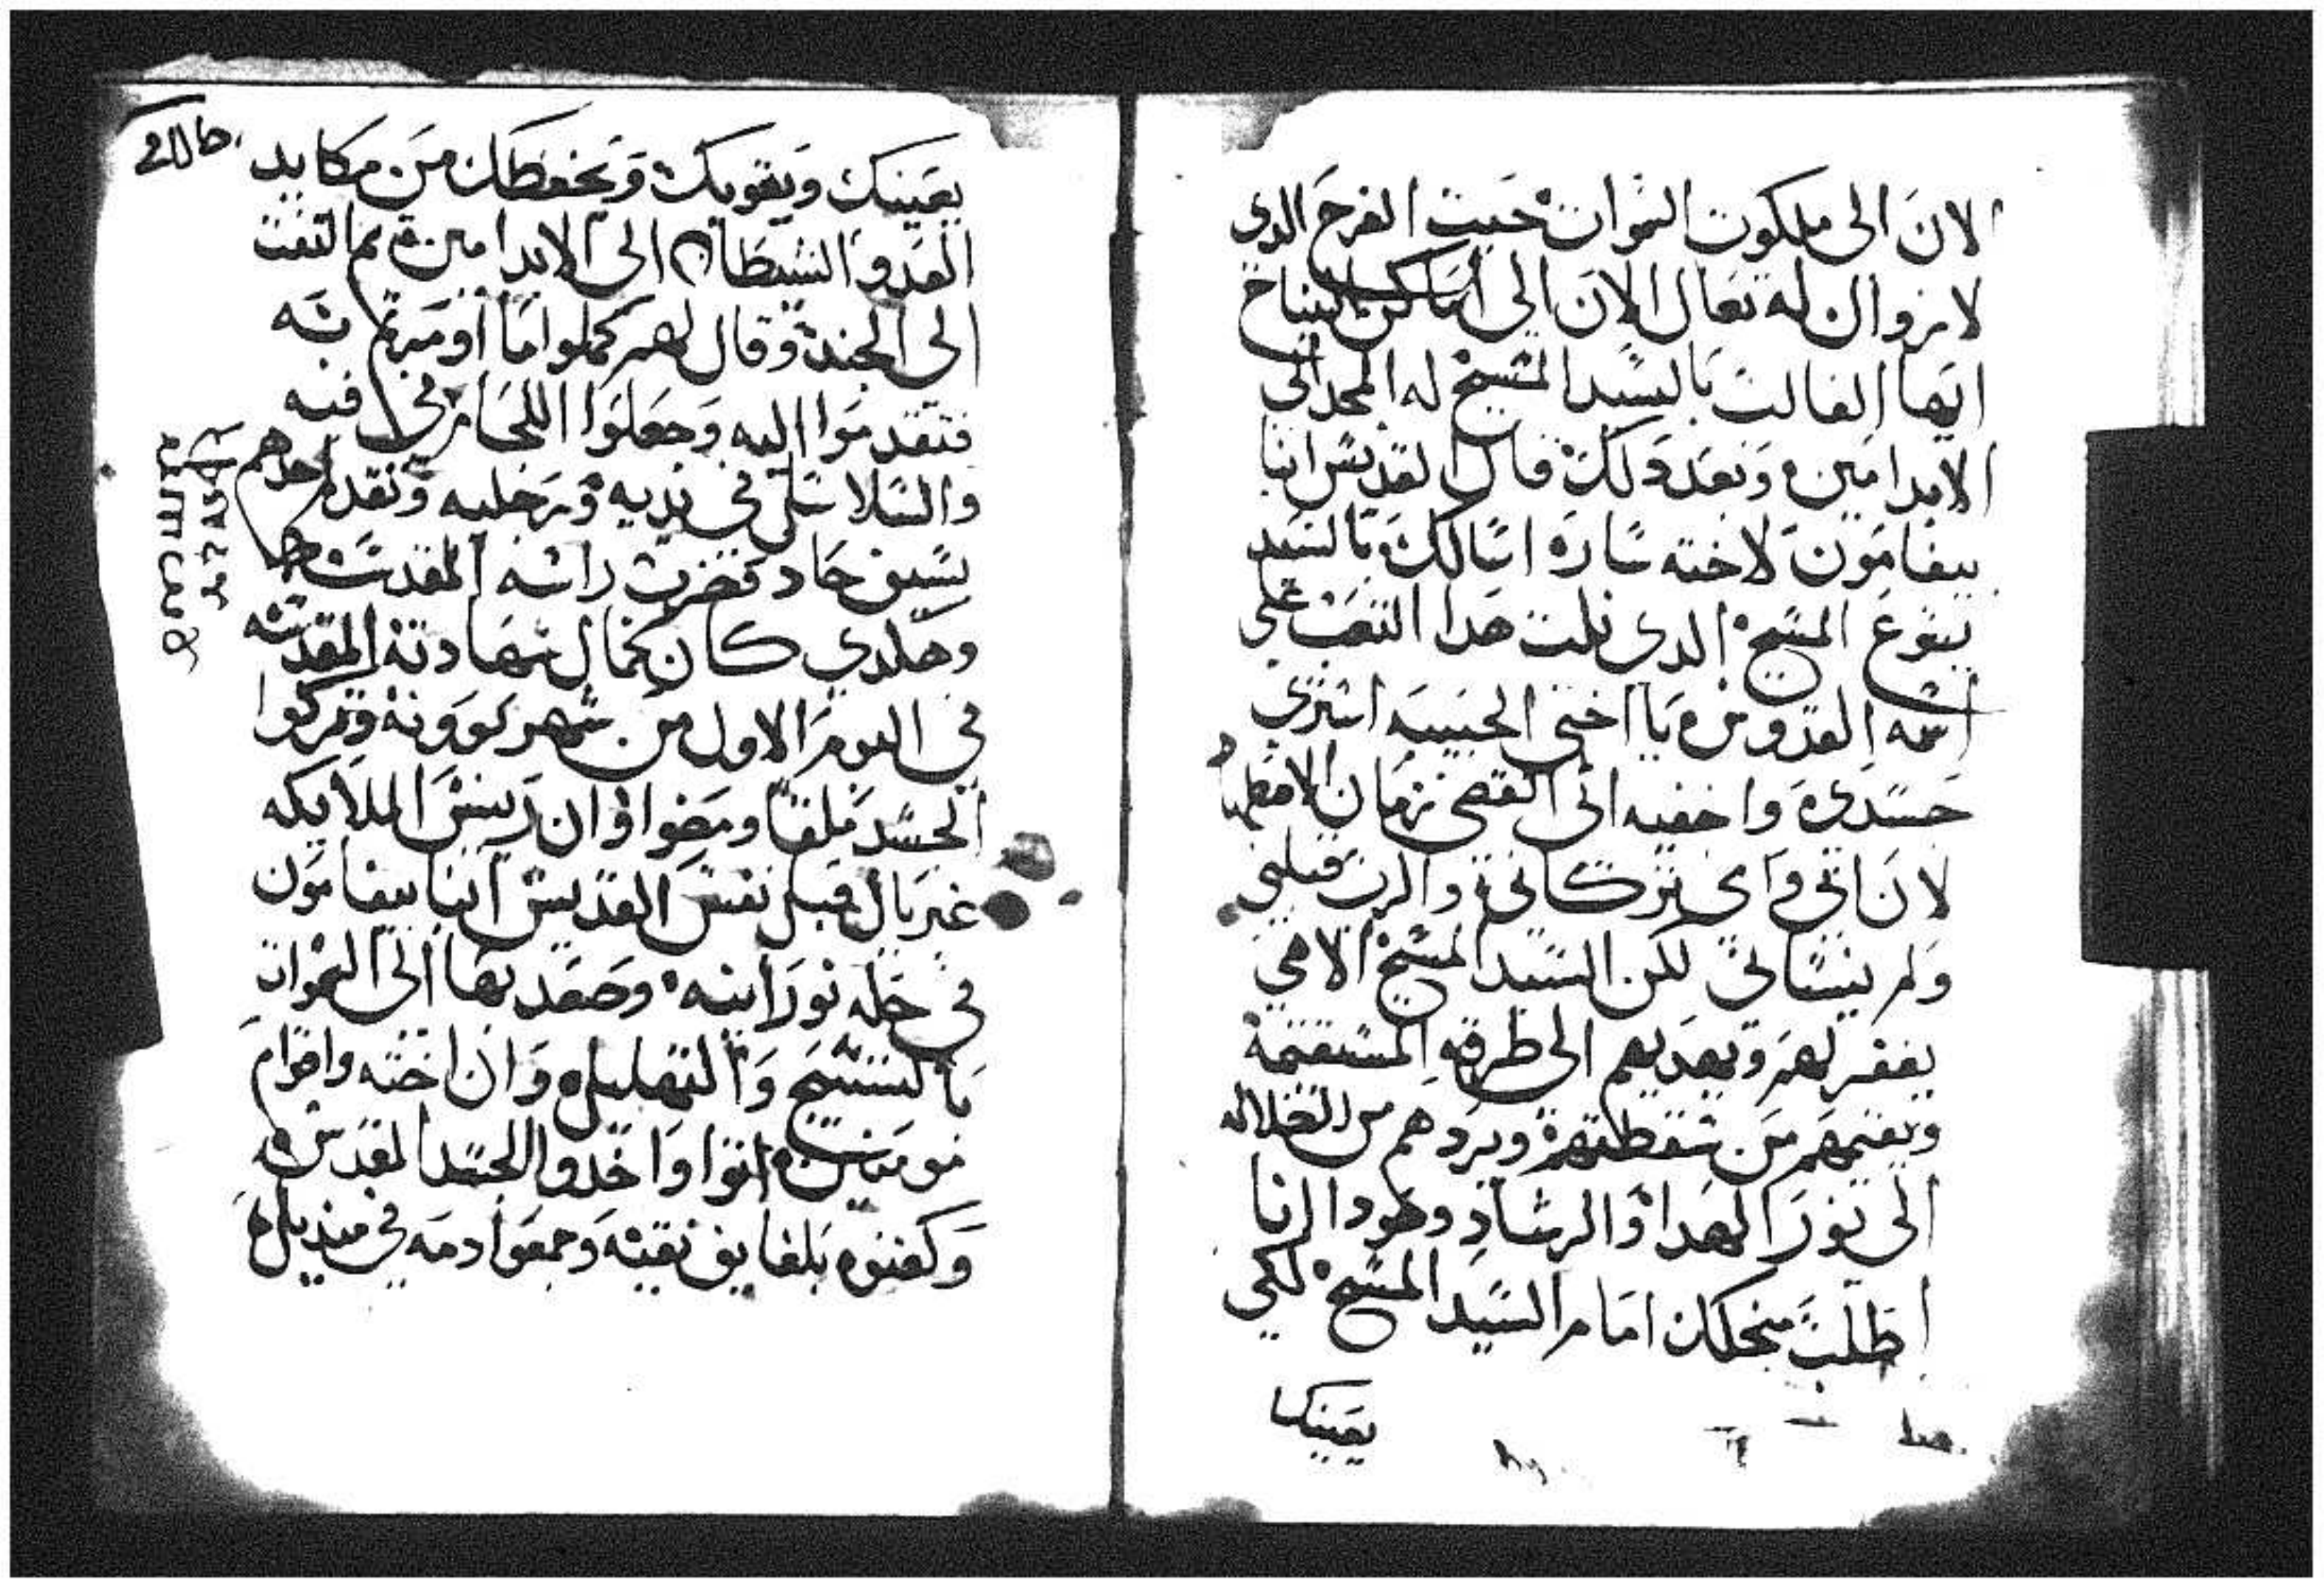 الان الى ملكوت السموات حيث الفرح الدى
لا زوال له تعال الان الى اماكن النياح
ايها الغالب بالسيد المسيح له المجد الى
الابد امين وبعد دلك قال القديس انبا
بيفامون لاخته ساره اسالك بالسيد
يسوع المسيح الدى نلت هدا التعب على
اسمه القدوس يا اختى الحبيبه استرى
جسدى واخفيه الى انقضى زمان الاضطهاد
لان ابى وامى تركانى والرب قبلنى
ولم ينسانى لكن السيد المسيح الاهى
يغفر لهم ويهديهم الى طرقه المستقيمة
ويقيمهم من سقطتهم ويردهم من الضلاله
الى نور الهدا والرشاد وهودا انا
اطلب منجلك امام السيد المسيح لكى
يعينك
يعينك ويقويك ويحفظك من مكايد
العدو الشيطان الى الابد امين ثم التفت
الى الجند وقال لهم كملوا ما اومرتم به
فتقدموا اليه وجعلوا اللجام فى فيه
والسلاسل فى يديه ورجليه وتقدم احدهم
بسيف حاد فضرب راسه المقدسه
وهكدى كان كمال شهادته المقدسه
فى اليوم الاول من شهر كوونه وتركوا
الجسد ملقا ومضوا وان رييس الملايكه
غبريال قبل نفس القديس انبا بيفامون
فى حله نورانيه وصعد بها الى السموات
بالتسبيح والتهليل وان اخته واقوام
مومنين اتوا واخدوا الجسد المقدس
وكفنوه بلفايف نقيه وجمعوا دمه فى منديل